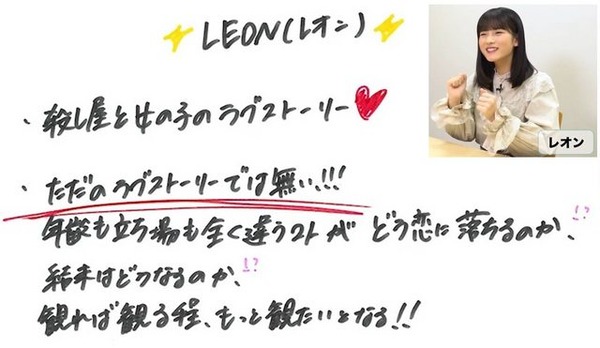 LEON(レオン)
・殺し屋と女の子のラブストーリー
・ただのラブストーリーでは無い、!!!
年齢も立ち場も全く違う2人が どう恋に落ちるのか、!?
結末はどうなるのか、!?
観れば観る程、もっと観たいとなる!!
レオン